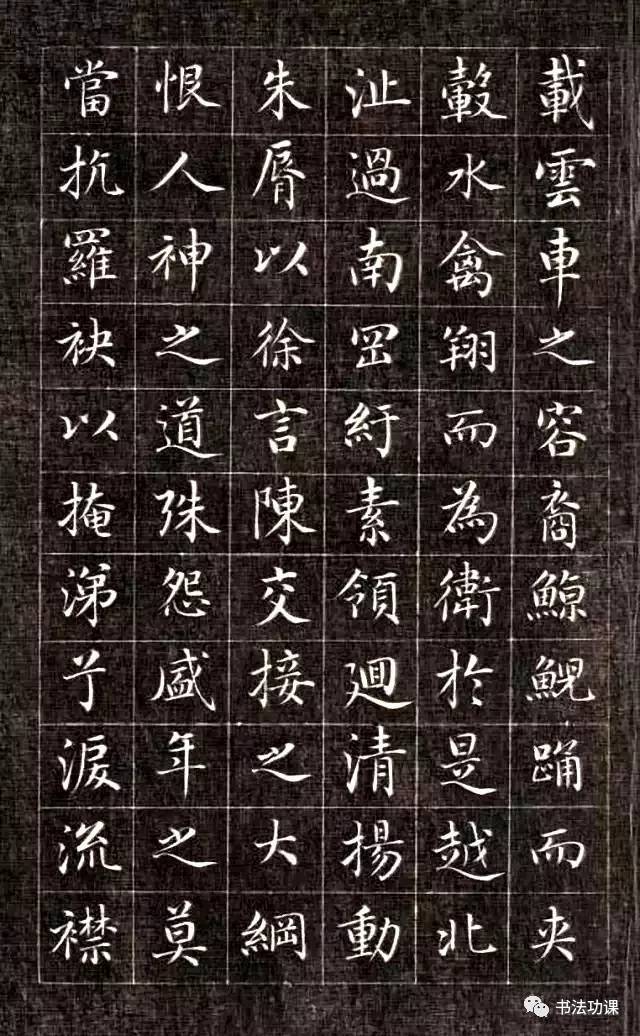 載雲車之容裔鯨鯢踊而夹
轂水禽翔而為衛於是越北
沚過南罡紆素領迴清揚動
朱脣以徐言陳交接之大綱
恨人神之道殊怨盛年之莫
當抗羅袂以掩涕兮淚流襟
书法功课